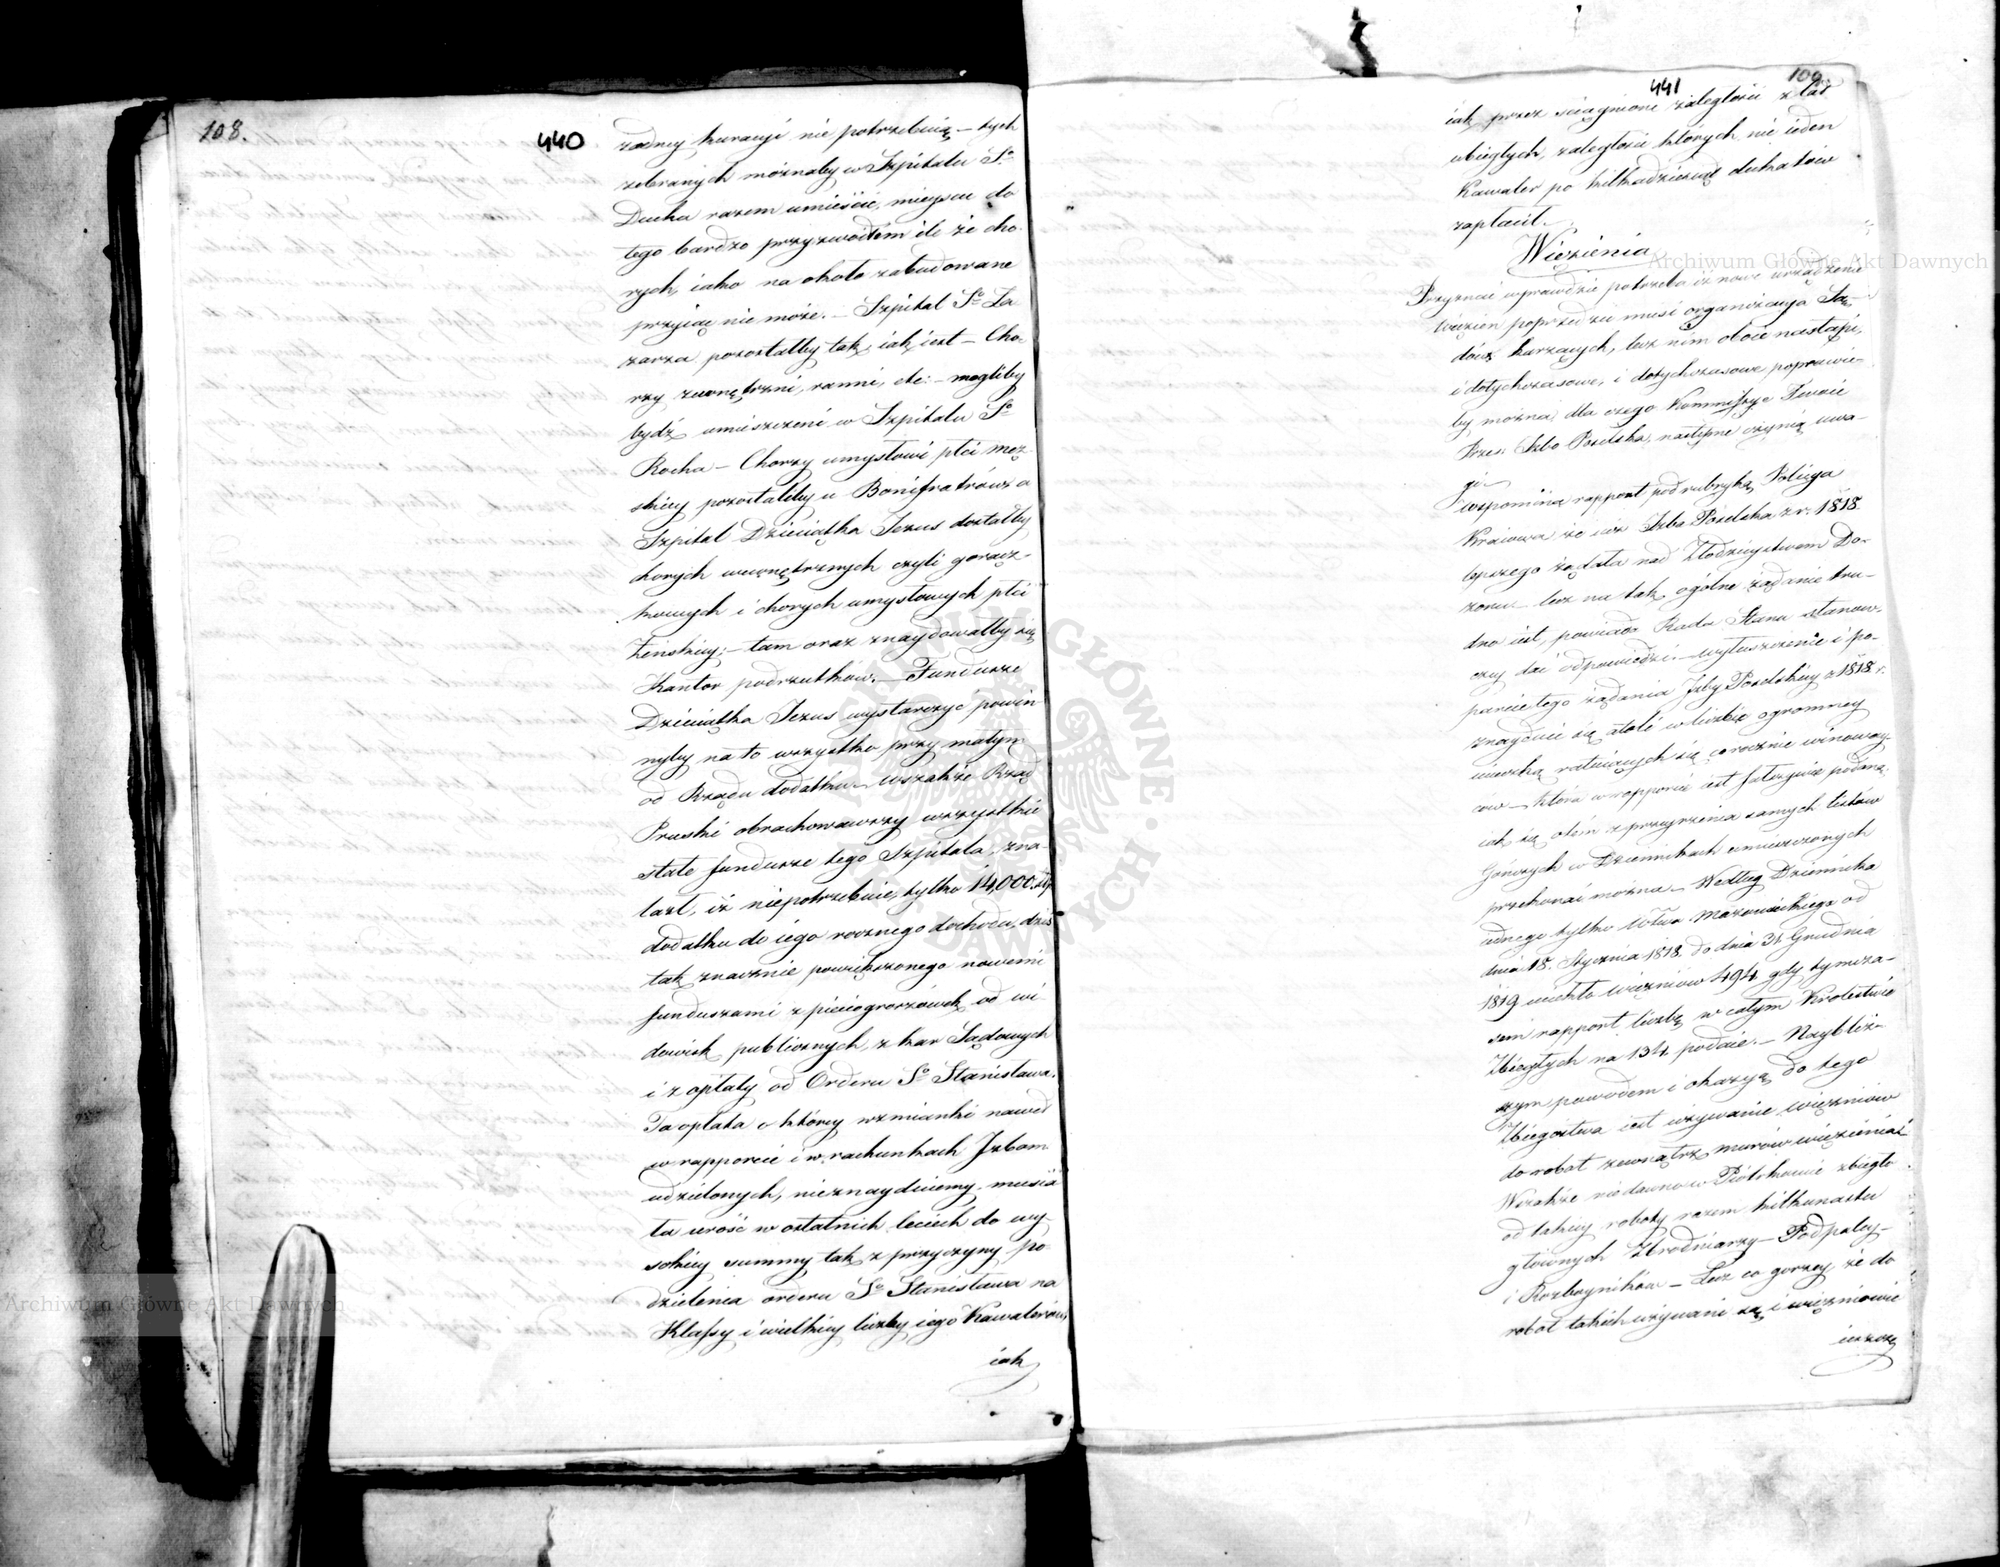 108.
440
żadney kuracyi nie potrzebuią – tych
zebranych możnaby w Szpitalu So
Ducha razem umieścić, mieyscu do
tego bardzo przyzwoitem ile że cho-
rych, iako na około zabudowane
przyiąć nie może. – Szpital So Ła
zarza pozostałby tak, iak iest – Cho-
rzy zewnętrzni, ranni, etc: – mogliby
bydź umieszczeni w Szpitalu So
Rocha – Chorzy umysłowi płci męz-
skiey pozostaliby u Bonifratrów a
Szpital Dzieciątka Jezus dostałby
chorych wewnętrznych czyli gorącz-
kowych i chorych umysłowych płci
żeńskiey; – tam oraz znaydowałby się
Kantor podrzutków. – Fundusze
Dzieciątka Jezus wystarczyć powin
nyby na to wszystko przy małym
od Rządu dodatku – wszakże Rząd
Pruski obrachowawszy wszystkie
stałe fundusze tego Szpitala, zna-
lazł, iż niepotrzebuie, tylko 14,000. złp
dodatku do iego rocznego dochodu, dziś
tak znacznie powiększonego nowemi
funduszami z pięciogroszówek od wi-
dowisk publicznych, z kar Sądowych
i z opłaty od Orderu So Stanisława.
Ta opłata o którey wzmianki nawet
w rapporcie i w rachunkach Jzbom
udzielonych, nieznaydziemy, musia
ła urość w ostatnich leciech do wy-
sokiey summy tak z przyczyny po-
dzielenia orderu So Stanisława na
Klassy i wielkiey liczby iego Kawalerów,
iak
441
109.
iak przez ściągnione zaległości z lat
ubiegłych, zaległości których nie ieden
Kawaler po kilkadziesiąt dukatów
zapłacił.
Więzienia
Przyznać wprawdzie potrzeba iż nowe urządzenie
więzień poprzedzić musi organizacya Są-
dów karzących, lecz nim oboie nastąpi,
i dotychczasowe, i dotychczasowe poprawić-
by można, dla czego Kommissye
Przes: Jzba Poselska, następne czynią uwa-
gi –
wspomina rapport pod rubryką Policya
Kraiowa, że iuż Jzba Poselska z r: 1818
lepszego żądała nad Złodzieystwem Do-
zoru – lecz na tak ogólne żądanie tru-
dno iest, powiada Rada Stanu stanow-
czey dać odpowiedzi. – wytłuszczenie i po-
parcie tego żądania Jzby Poselskiey z 1818 r.
znayduie się atoli w liczbie ogromney
ucieczką ratuiących się corocznie winoway-
ców – która w rapporcie iest fałszywie podaną,
iak się o tém z przeyrzenia samych listów
Gończych w Dziennikach umieszczonych
przekonać można – Według Dziennika
iednego tylko Wdztwa Mazowieckiego od
dnia 18. Stycznia 1818. do dnia 31 Grudnia
1819 uciekło więźniów 494. gdy tymcza-
sem rapport liczbę w całym Krolestwie
Zbiegłych na 134. podaie. – Naybliż-
szym powodem i okazyą do tego
Zbiegostwa iest używanie więźniów
do robót zewnątrz murów więzienia
Wszakże niedawno w Piotrkowie zbiegło
od takiey roboty razem kilkunastu
głównych Zbrodniarzy – Podpalcy –
i Rozboyników – Lecz co gorzey, że do
robót takich używani są i więźniowie
ieszcze
Archiwum Główne Akt Dawnych
Archiwum Główne Akt Dawnych
ARCHIWUM GŁÓWNE AKT DAWNYCH